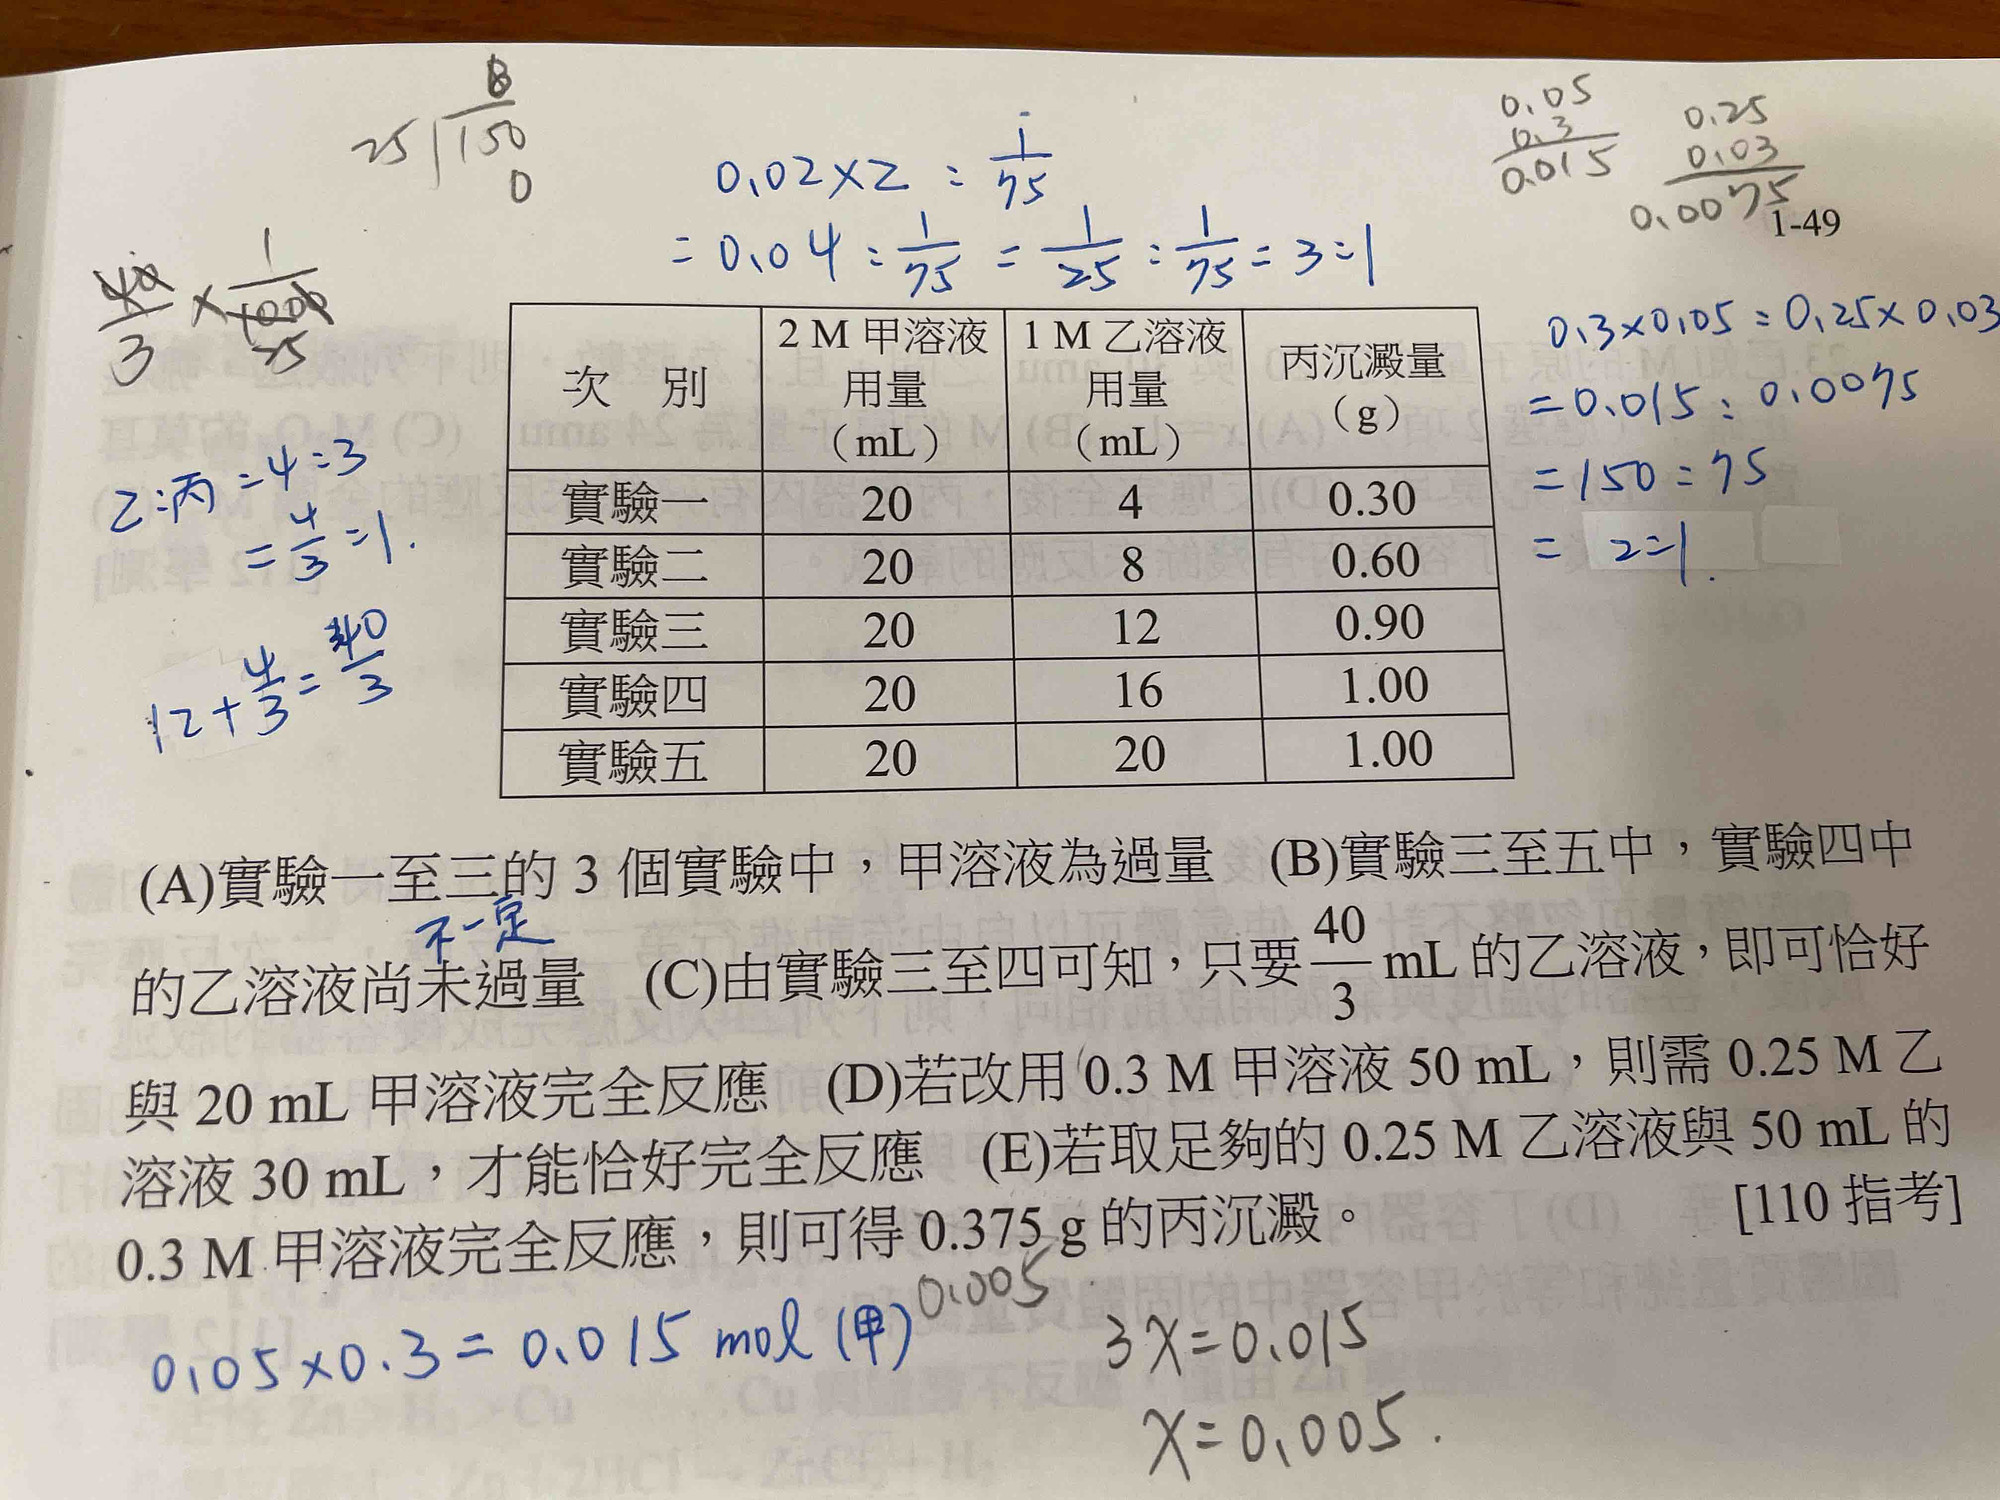 6
25 150
0
0.02×2 : 1/75
= 0.04 : 1/75 = 1/25 : 1/75 = 3:1
0.05
0.3
0.015
0.25
0.03
0.0075
1-49
40/3 × 1/1000
25
乙:丙=4:3
=4/3=1.
12+4/3=40/3
0.3×0.05:0.25×0.03
=0.015:0.0075
=150:75
=2:1.
次 別 2 M 甲溶液用量(mL) 1 M 乙溶液用量(mL) 丙沉澱量(g)
實驗一 20 4 0.30
實驗二 20 8 0.60
實驗三 20 12 0.90
實驗四 20 16 1.00
實驗五 20 20 1.00
(A)實驗一至三的 3 個實驗中,甲溶液為過量 (B)實驗三至五中,實驗四中
不一定
的乙溶液尚未過量 (C)由實驗三至四可知,只要 40/3 mL 的乙溶液,即可恰好
與 20 mL 甲溶液完全反應 (D)若改用 0.3 M 甲溶液 50 mL,則需 0.25 M 乙
溶液 30 mL,才能恰好完全反應 (E)若取足夠的 0.25 M 乙溶液與 50 mL 的
0.3 M 甲溶液完全反應,則可得 0.375 g 的丙沉澱。 [110 指考]
0.05×0.3=0.015 mol (甲)
0.005
3X=0.015
X=0.005.